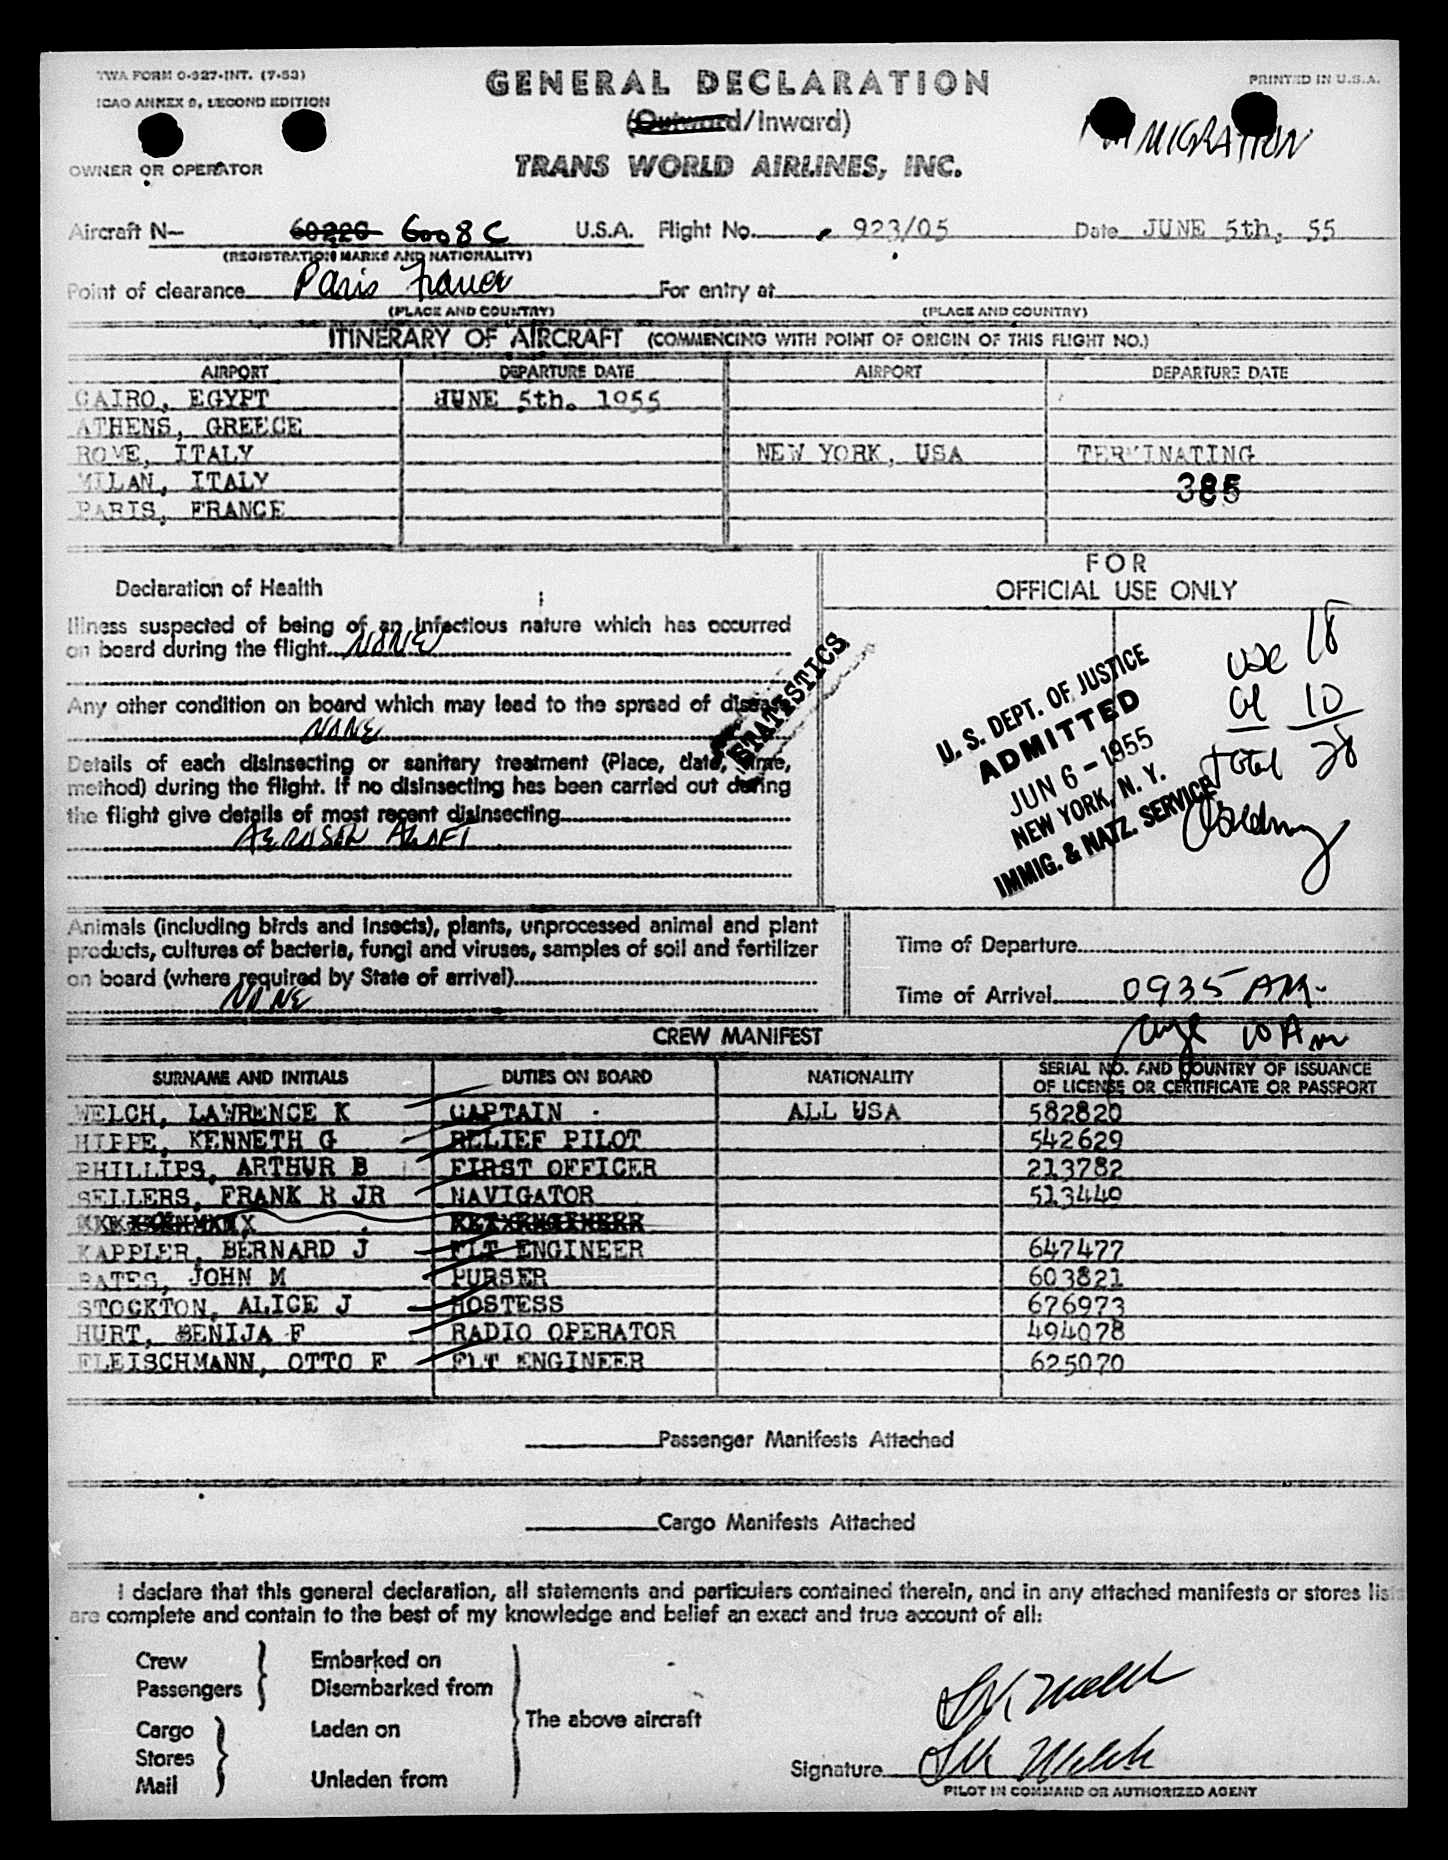 TWA FORM O-927-INT. (7-53)
ICAO ANNEX 9, SECOND EDITION
GENERAL DECLARATION
PRINTED IN U.S.A.
(Outward/Inward)
IMMIGRATION
OWNER OR OPERATOR
TRANS WORLD AIRLINES, INC.
Aircraft N– 6022C 6008C U.S.A. Flight No. 923/05 Date JUNE 5th, 55
(REGISTRATION MARKS AND NATIONALITY)
Point of clearance Paris France For entry at
(PLACE AND COUNTRY) (PLACE AND COUNTRY)
ITINERARY OF AIRCRAFT (COMMENCING WITH POINT OF ORIGIN OF THIS FLIGHT NO.)
AIRPORT DEPARTURE DATE AIRPORT DEPARTURE DATE
CAIRO, EGYPT JUNE 5th. 1955
ATHENS, GREECE
ROME, ITALY NEW YORK, USA TERMINATING
MILAN, ITALY 385
PARIS, FRANCE
FOR
OFFICIAL USE ONLY
Declaration of Health
Illness suspected of being of an infectious nature which has occurred
on board during the flight NONE
Any other condition on board which may lead to the spread of disease
NONE
Details of each disinsecting or sanitary treatment (Place, date, time,
method) during the flight. If no disinsecting has been carried out during
the flight give details of most recent disinsecting
STATISTICS
U. S. DEPT. OF JUSTICE
ADMITTED
JUN 6 - 1955
NEW YORK, N. Y.
IMMIG. & NATZ. SERVICE
18
10
Total 28
Animals (including birds and insects), plants, unprocessed animal and plant
products, cultures of bacteria, fungi and viruses, samples of soil and fertilizer
on board (where required by State of arrival)
NONE
Time of Departure
Time of Arrival 0935 AM
10 Am
CREW MANIFEST
SURNAME AND INITIALS DUTIES ON BOARD NATIONALITY SERIAL NO. AND COUNTRY OF ISSUANCE
OF LICENSE OR CERTIFICATE OR PASSPORT
WELCH, LAWRENCE K CAPTAIN ALL USA 582820
HIPPE, KENNETH G RELIEF PILOT 542629
PHILLIPS, ARTHUR B FIRST OFFICER 213782
SELLERS, FRANK H JR NAVIGATOR 513449
KAPPLER, BERNARD J FLT ENGINEER 647477
BATES, JOHN M PURSER 603821
STOCKTON, ALICE J HOSTESS 676973
HURT, BENIJA F RADIO OPERATOR 494078
FLEISCHMANN, OTTO F FLT ENGINEER 625070
Passenger Manifests Attached
Cargo Manifests Attached
I declare that this general declaration, all statements and particulars contained therein, and in any attached manifests or stores lists
are complete and contain to the best of my knowledge and belief an exact and true account of all:
Crew Embarked on
Passengers Disembarked from
The above aircraft
Cargo Laden on
Stores
Mail Unladen from
LK Welch
Signature LK Welch
PILOT IN COMMAND OR AUTHORIZED AGENT